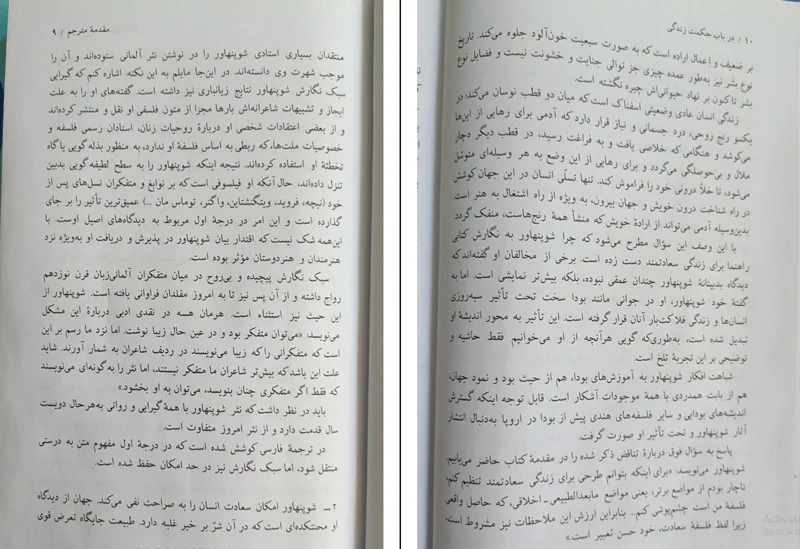 مقدمهٔ مترجم / ۹
منتقدان بسیاری استادی شوپنهاور را در نوشتن نثر آلمانی ستوده‌اند و آن را
موجب شهرت وی دانسته‌اند. در این‌جا مایلم به این نکته اشاره کنم که گیرایی
سبک نگارش شوپنهاور نتایج زیانباری نیز داشته است. گفته‌های او را به علت
ایجاز و تشبیهات شاعرانه‌اش بارها مجزا از متون فلسفی او نقل و منتشر کرده‌اند
و از بعضی اعتقادات شخصی او دربارهٔ روحیات زنان، استادان رسمی فلسفه و
خصوصیات ملت‌ها، که ربطی به اساس فلسفهٔ او ندارد، به منظور بذله‌گویی یا گاه
تخطئهٔ او استفاده کرده‌اند. نتیجه اینکه شوپنهاور را به سطح لطیفه‌گویی بدبین
تنزل داده‌اند، حال آنکه او فیلسوفی است که بر نوابغ و متفکران نسل‌های پس از
خود (نیچه، فروید، ویتگنشتاین، واگنر، توماس مان ...) عمیق‌ترین تأثیر را بر جای
گذارده است و این امر در درجهٔ اول مربوط به دیدگاه‌های اصیل اوست. با
این‌همه شک نیست که اقتدار بیان شوپنهاور در پذیرش و دریافت او به‌ویژه نزد
هنرمندان و هنردوستان مؤثر بوده است.
سبک نگارش پیچیده و بی‌روح در میان متفکران آلمانی‌زبان قرن نوزدهم
رواج داشته و از آن پس نیز تا به امروز مقلدان فراوانی یافته است. شوپنهاور از
این حیث نیز استثناء است. هرمان هسه در نقدی ادبی دربارهٔ این مشکل
می‌نویسد: «می‌توان متفکر بود و در عین حال زیبا نوشت. اما نزد ما رسم بر این
است که متفکرانی را که زیبا می‌نویسند در ردیف شاعران به شمار آورند. شاید
علت این باشد که بیش‌تر شاعران ما متفکر نیستند، اما نثر را به‌گونه‌ای می‌نویسند
که فقط اگر متفکری چنان بنویسد، می‌توان به او بخشود.»
باید در نظر داشت که نثر شوپنهاور با همهٔ گیرایی و روانی به‌هرحال دویست
سال قدمت دارد و از نثر امروز متفاوت است.
در ترجمهٔ فارسی کوشش شده است که در درجهٔ اول مفهوم متن به درستی
منتقل شود، اما سبک نگارش نیز در حد امکان حفظ شده است.
۲ــ شوپنهاور امکان سعادت انسان را به صراحت نفی می‌کند. جهان از دیدگاه
او محنتکده‌ای است که در آن شرّ بر خیر غلبه دارد. طبیعت جایگاه تعرض قوی
۱۰ / در باب حکمت زندگی
بر ضعیف و اِعمال اراده است که به صورت سبعیت خون‌آلود جلوه می‌کند. تاریخ
نوع بشر نیز به‌طور عمده چیزی جز توالی جنایت و خشونت نیست و فضایل نوع
بشر تاکنون بر نهاد حیوانی‌اش چیره نگشته است.
زندگی انسان عادی وضعیتی اسفناک است که میان دو قطب نوسان می‌کند: در
یکسو رنج روحی، درد جسمانی و نیاز قرار دارد که آدمی برای رهایی از این‌ها
می‌کوشد و هنگامی که خلاصی یافت و به فراغت رسید، در قطب دیگر دچار
ملال و بی‌حوصلگی می‌گردد و برای رهایی از این وضع به هر وسیله‌ای متوسّل
می‌شود، تا خلأ درونی خود را فراموش کند. تنها تسلّی انسان در این جهان کوشش
در راه شناخت درون خویش و جهان بیرون، به ویژه از راه اشتغال به هنر است.
بدین‌وسیله آدمی می‌تواند از ارادهٔ خویش که منشأ همهٔ رنج‌هاست، منفک گردد
با این وصف این سؤال مطرح می‌شود که چرا شوپنهاور به نگارش کتابی
راهنما برای زندگی سعادتمند دست زده است. برخی از مخالفان او گفته‌اند که
دیدگاه بدبینانهٔ شوپنهاور چندان عمقی نبوده، بلکه بیش‌تر نمایشی است. اما به
گفتهٔ خود شوپنهاور، او در جوانی مانند بودا سخت تحت تأثیر سیه‌روزی
انسان‌ها و زندگی فلاکت‌بار آنان قرار گرفته است. این تأثیر به محور اندیشهٔ او
تبدیل شده است، به‌طوری‌که گویی هرآنچه از او می‌خوانیم فقط حاشیه و
توضیحی بر این تجربهٔ تلخ است.
شباهت افکار شوپنهاور به آموزش‌های بودا، هم از حیث بود و نمود جهان،
هم از بابت همدردی با همهٔ موجودات آشکار است. قابل توجه اینکه گسترش
اندیشه‌های بودایی و سایر فلسفه‌های هندی پیش از بودا در اروپا به‌دنبال انتشار
آثار شوپنهاور و تحت تأثیر او صورت گرفت.
پاسخ به سؤال فوق دربارهٔ تناقض ذکر شده را در مقدمهٔ کتاب حاضر می‌یابیم.
شوپنهاور می‌نویسد: «برای اینکه بتوانم طرحی برای زندگی سعادتمند تنظیم کنم،
ناچار بودم از مواضع برتر، یعنی مواضع مابعدالطبیعی-اخلاقی، که حاصل واقعی
فلسفهٔ من است چشم‌پوشی کنم... بنابراین ارزش این ملاحظات نیز مشروط است،
زیرا لفظ فلسفهٔ سعادت، خود حسن تعبیر است.»